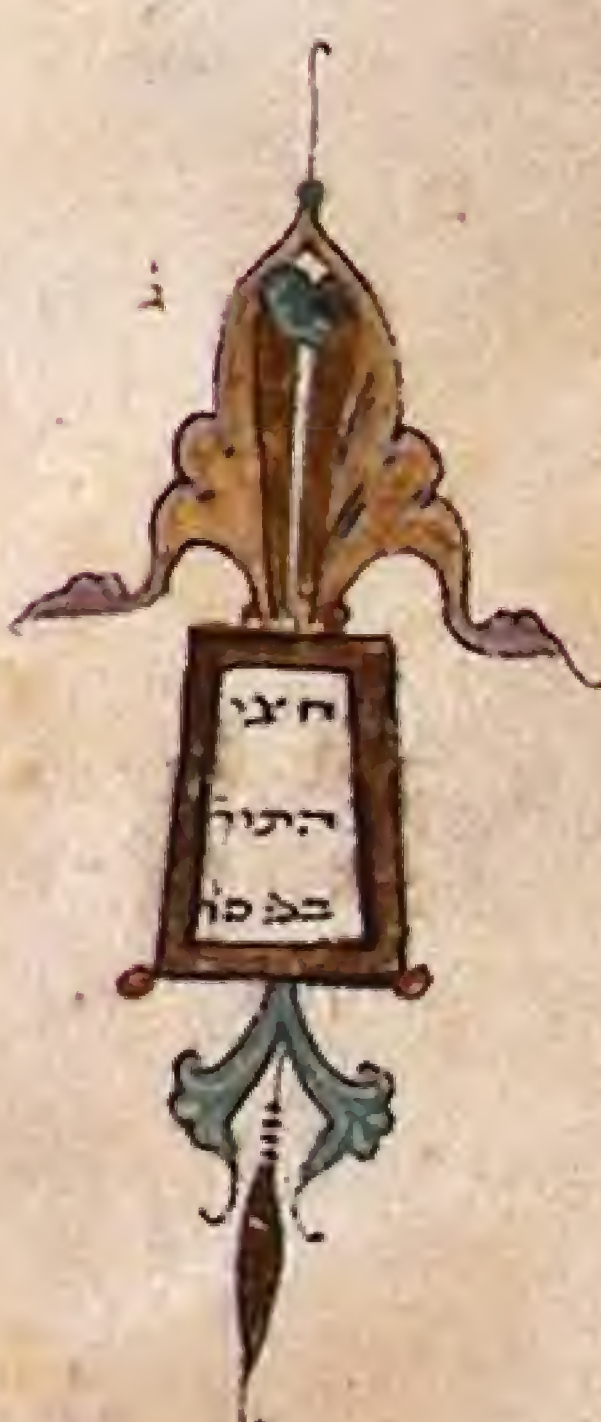 חצי
התור׳
בפסו׳